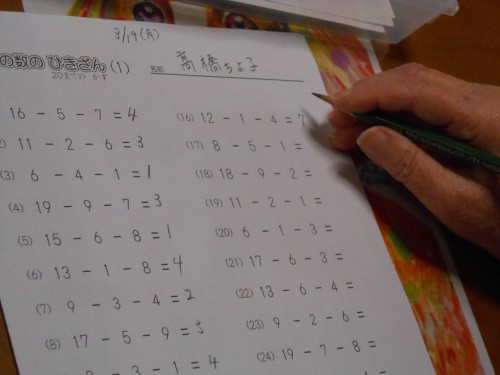 3/19(月)
の数の ひきざん(1)
20までの かず
名前 高橋ちよ子
16 - 5 - 7 = 4
11 - 2 - 6 = 3
(3) 6 - 4 - 1 = 1
(4) 19 - 9 - 7 = 3
(5) 15 - 6 - 8 = 1
(6) 13 - 1 - 8 = 4
(7) 9 - 3 - 4 = 2
(8) 17 - 5 - 9 = 3
- 3 - 1 = 4
(16) 12 - 1 - 4 = 7
(17) 8 - 5 - 1 =
(18) 18 - 9 - 2 =
(19) 11 - 2 - 1 =
(20) 6 - 1 - 3 =
(21) 17 - 6 - 3 =
(22) 13 - 6 - 4 =
(23) 9 - 2 - 6 =
(24) 19 - 7 - 8 =